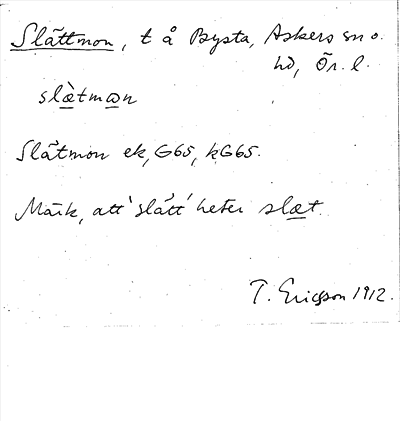 Slättmon, t å Bysta, Askers sn o.
hd, Ör. l.
slætmɷn
Slätmon ek, G65, kG65.
Märk, att 'slätt' heter slæt.
T. Ericsson 1912.